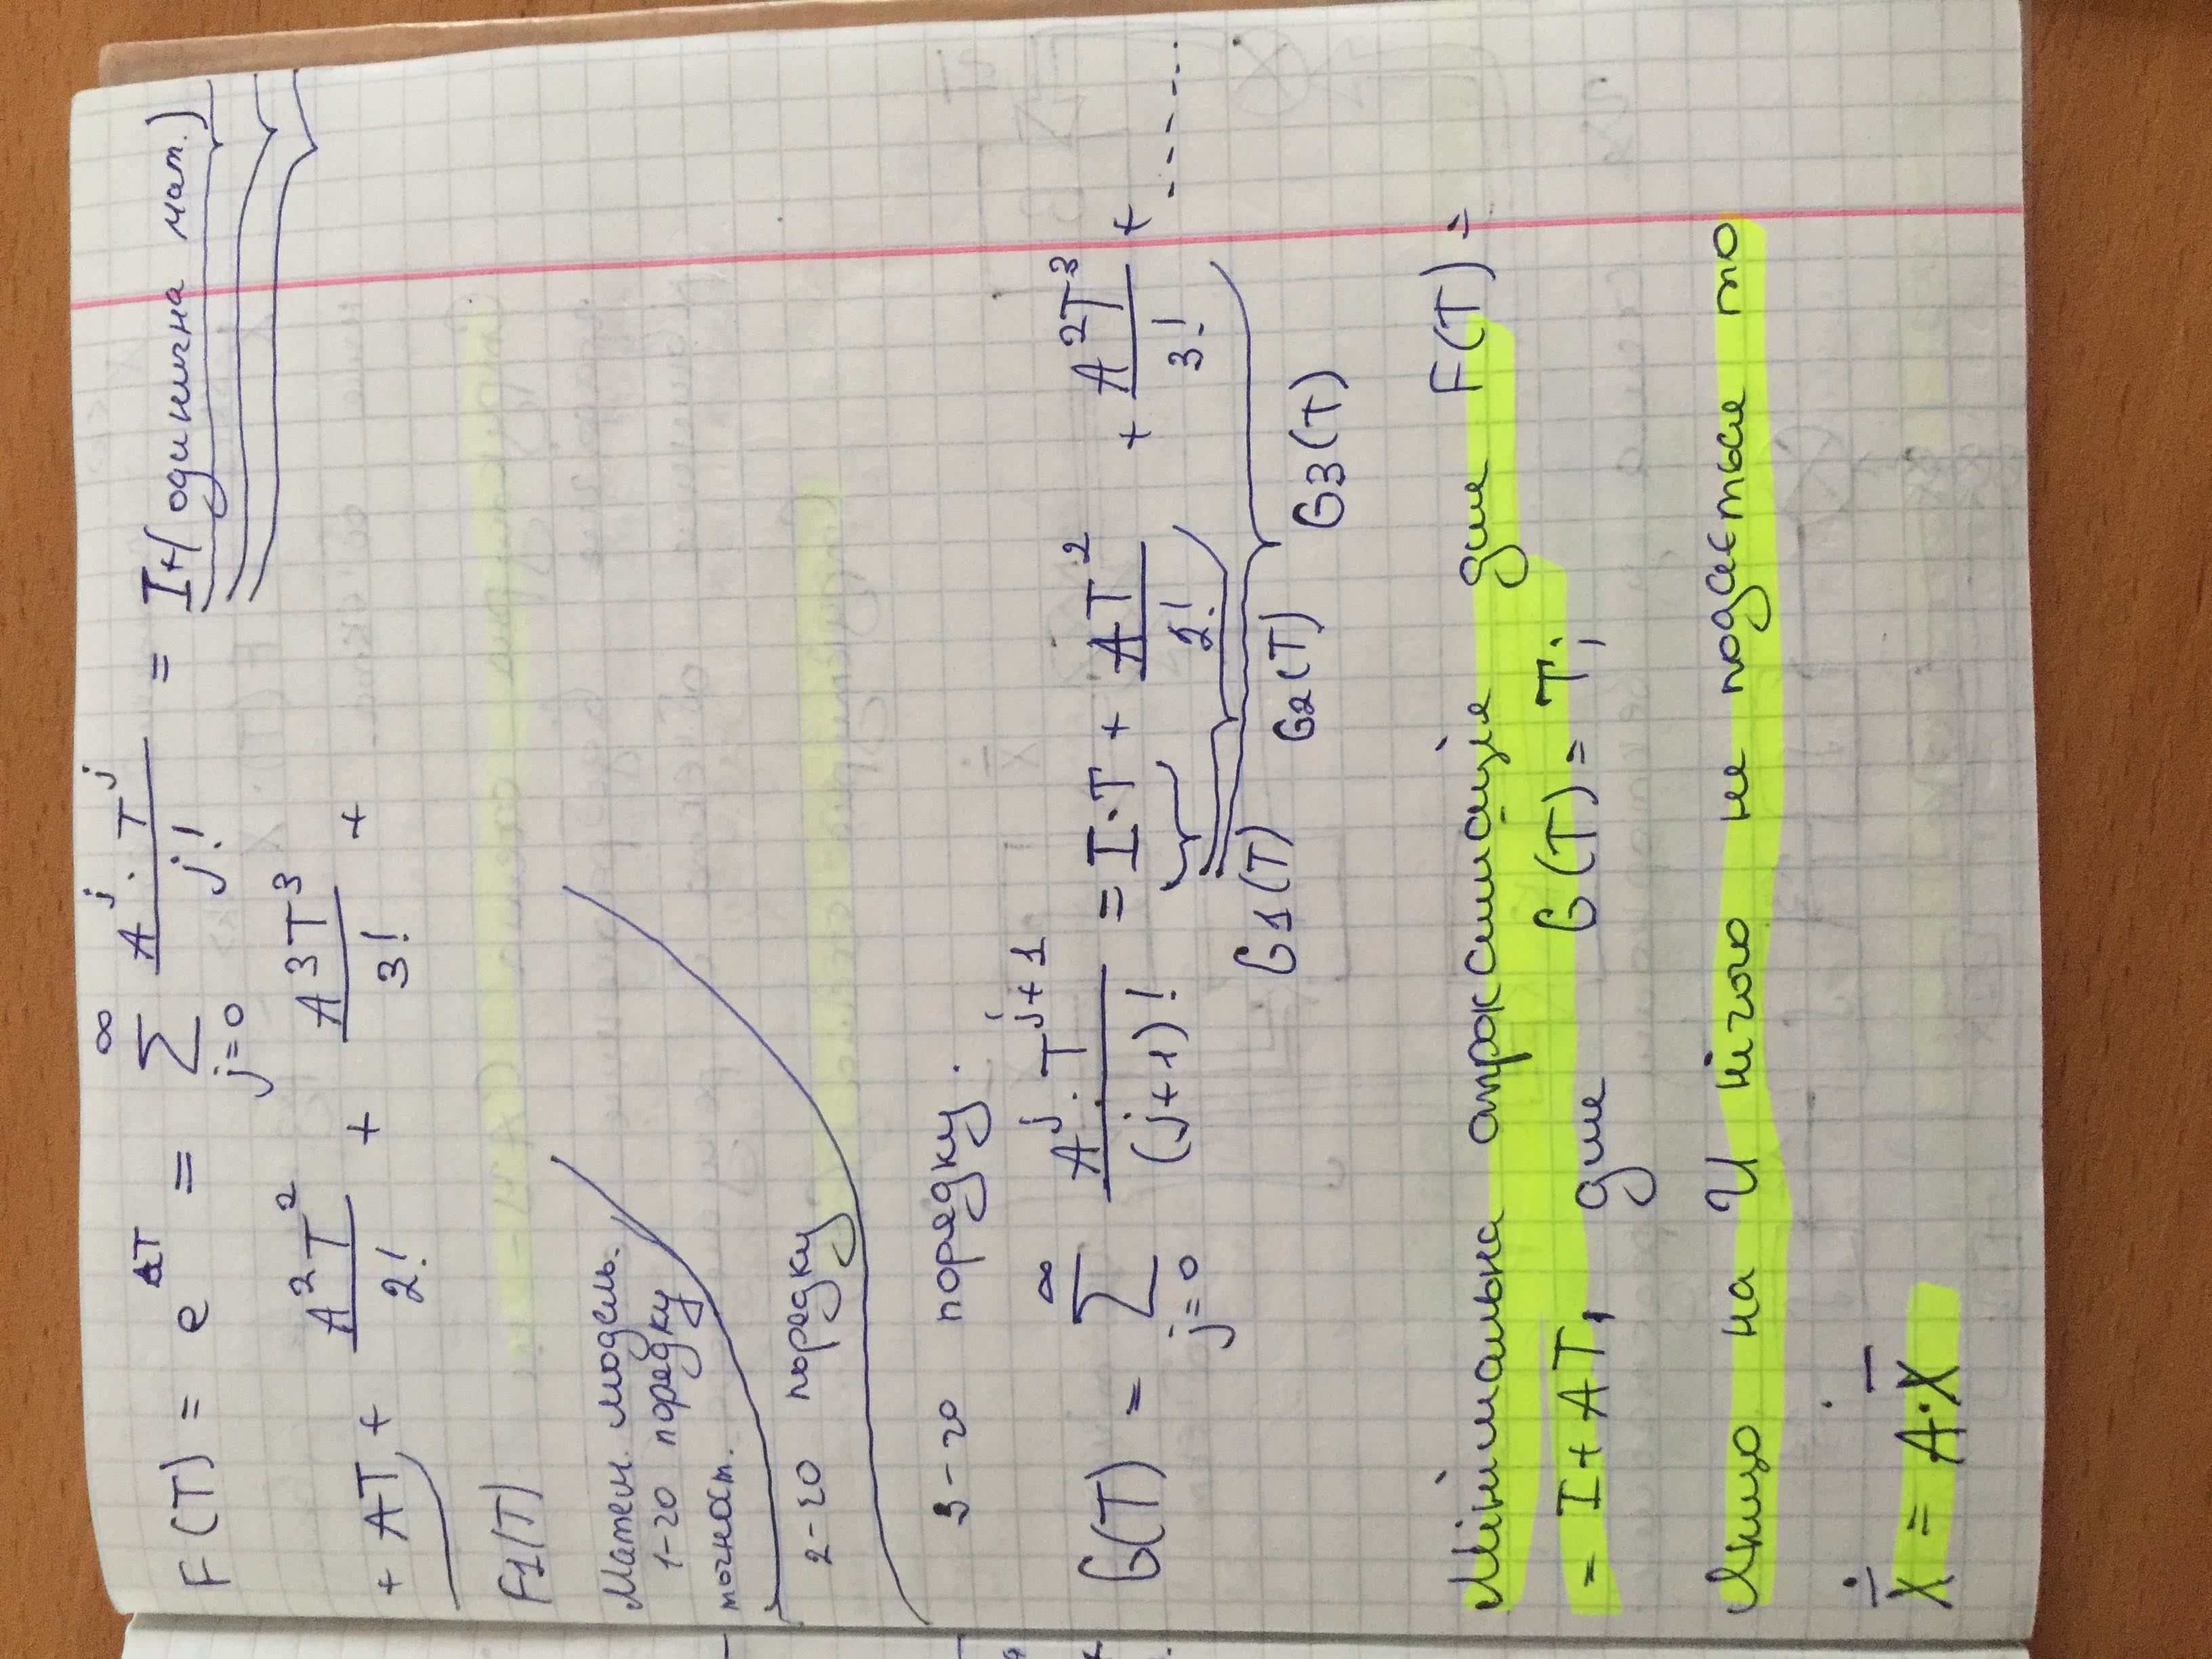 F(T) = e^{AT} = \sum_{j=0}^{∞} \frac{A^j · T^j}{j!} = I+(одинична мат.)
+ AT + \frac{A^2 T^2}{2!} + \frac{A^3 T^3}{3!} +
F1(T)
Матем. модель.
1-го порядку
точност.
2-го порядку
3-го порядку.
G(T) = \sum_{j=0}^{∞} \frac{A^j · T^{j+1}}{(j+1)!} = I·T + \frac{AT^2}{2!} + \frac{A^2T^3}{3!} + ......
G1(T) G2(T) G3(T)
Мінімальна апроксимація для F(T) =
= I+AT, для G(T) = T;
Якщо на U нічого не подається то
\dot{\bar{X}} = A·\bar{X}